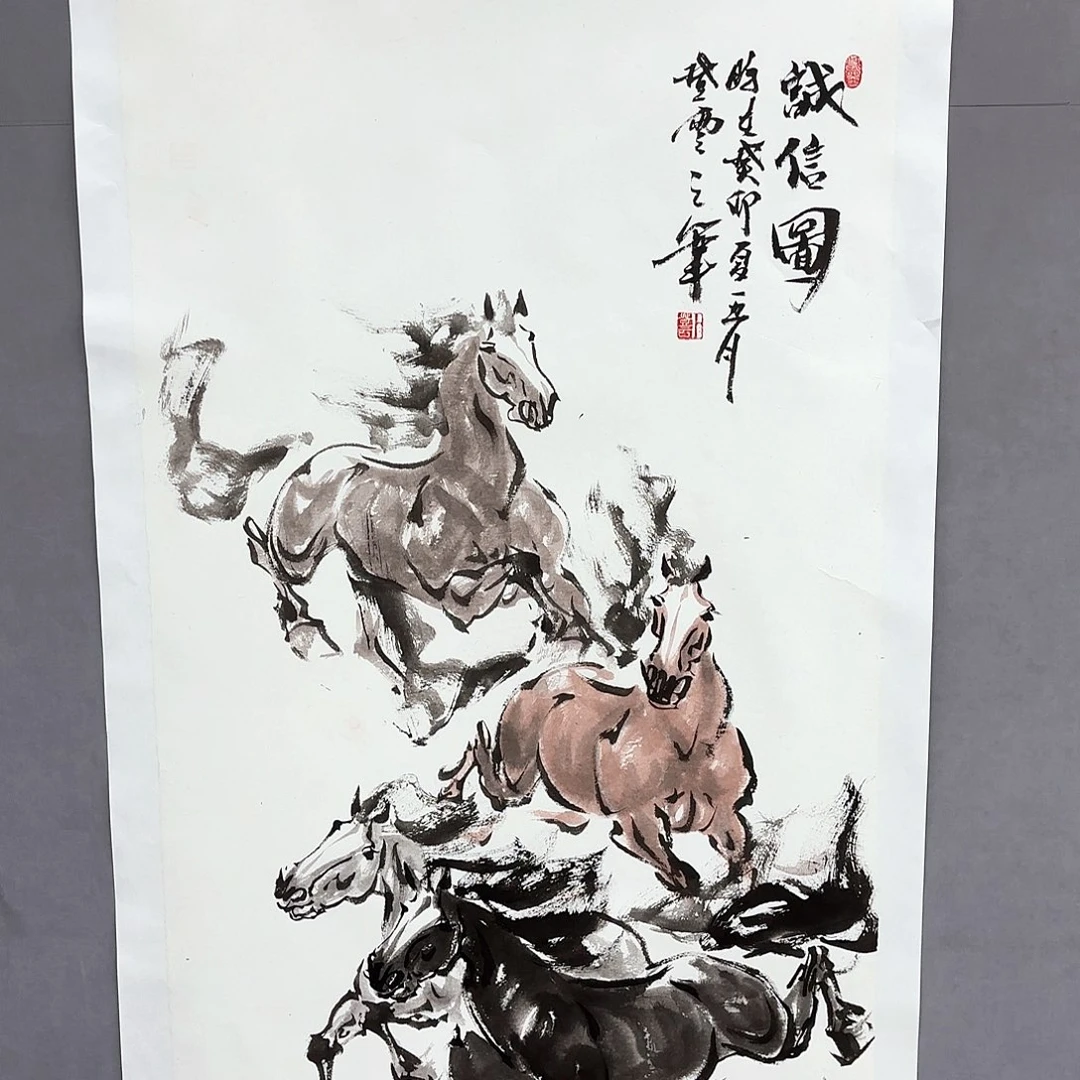 誠信圖
時在癸卯夏五月
登雲之筆